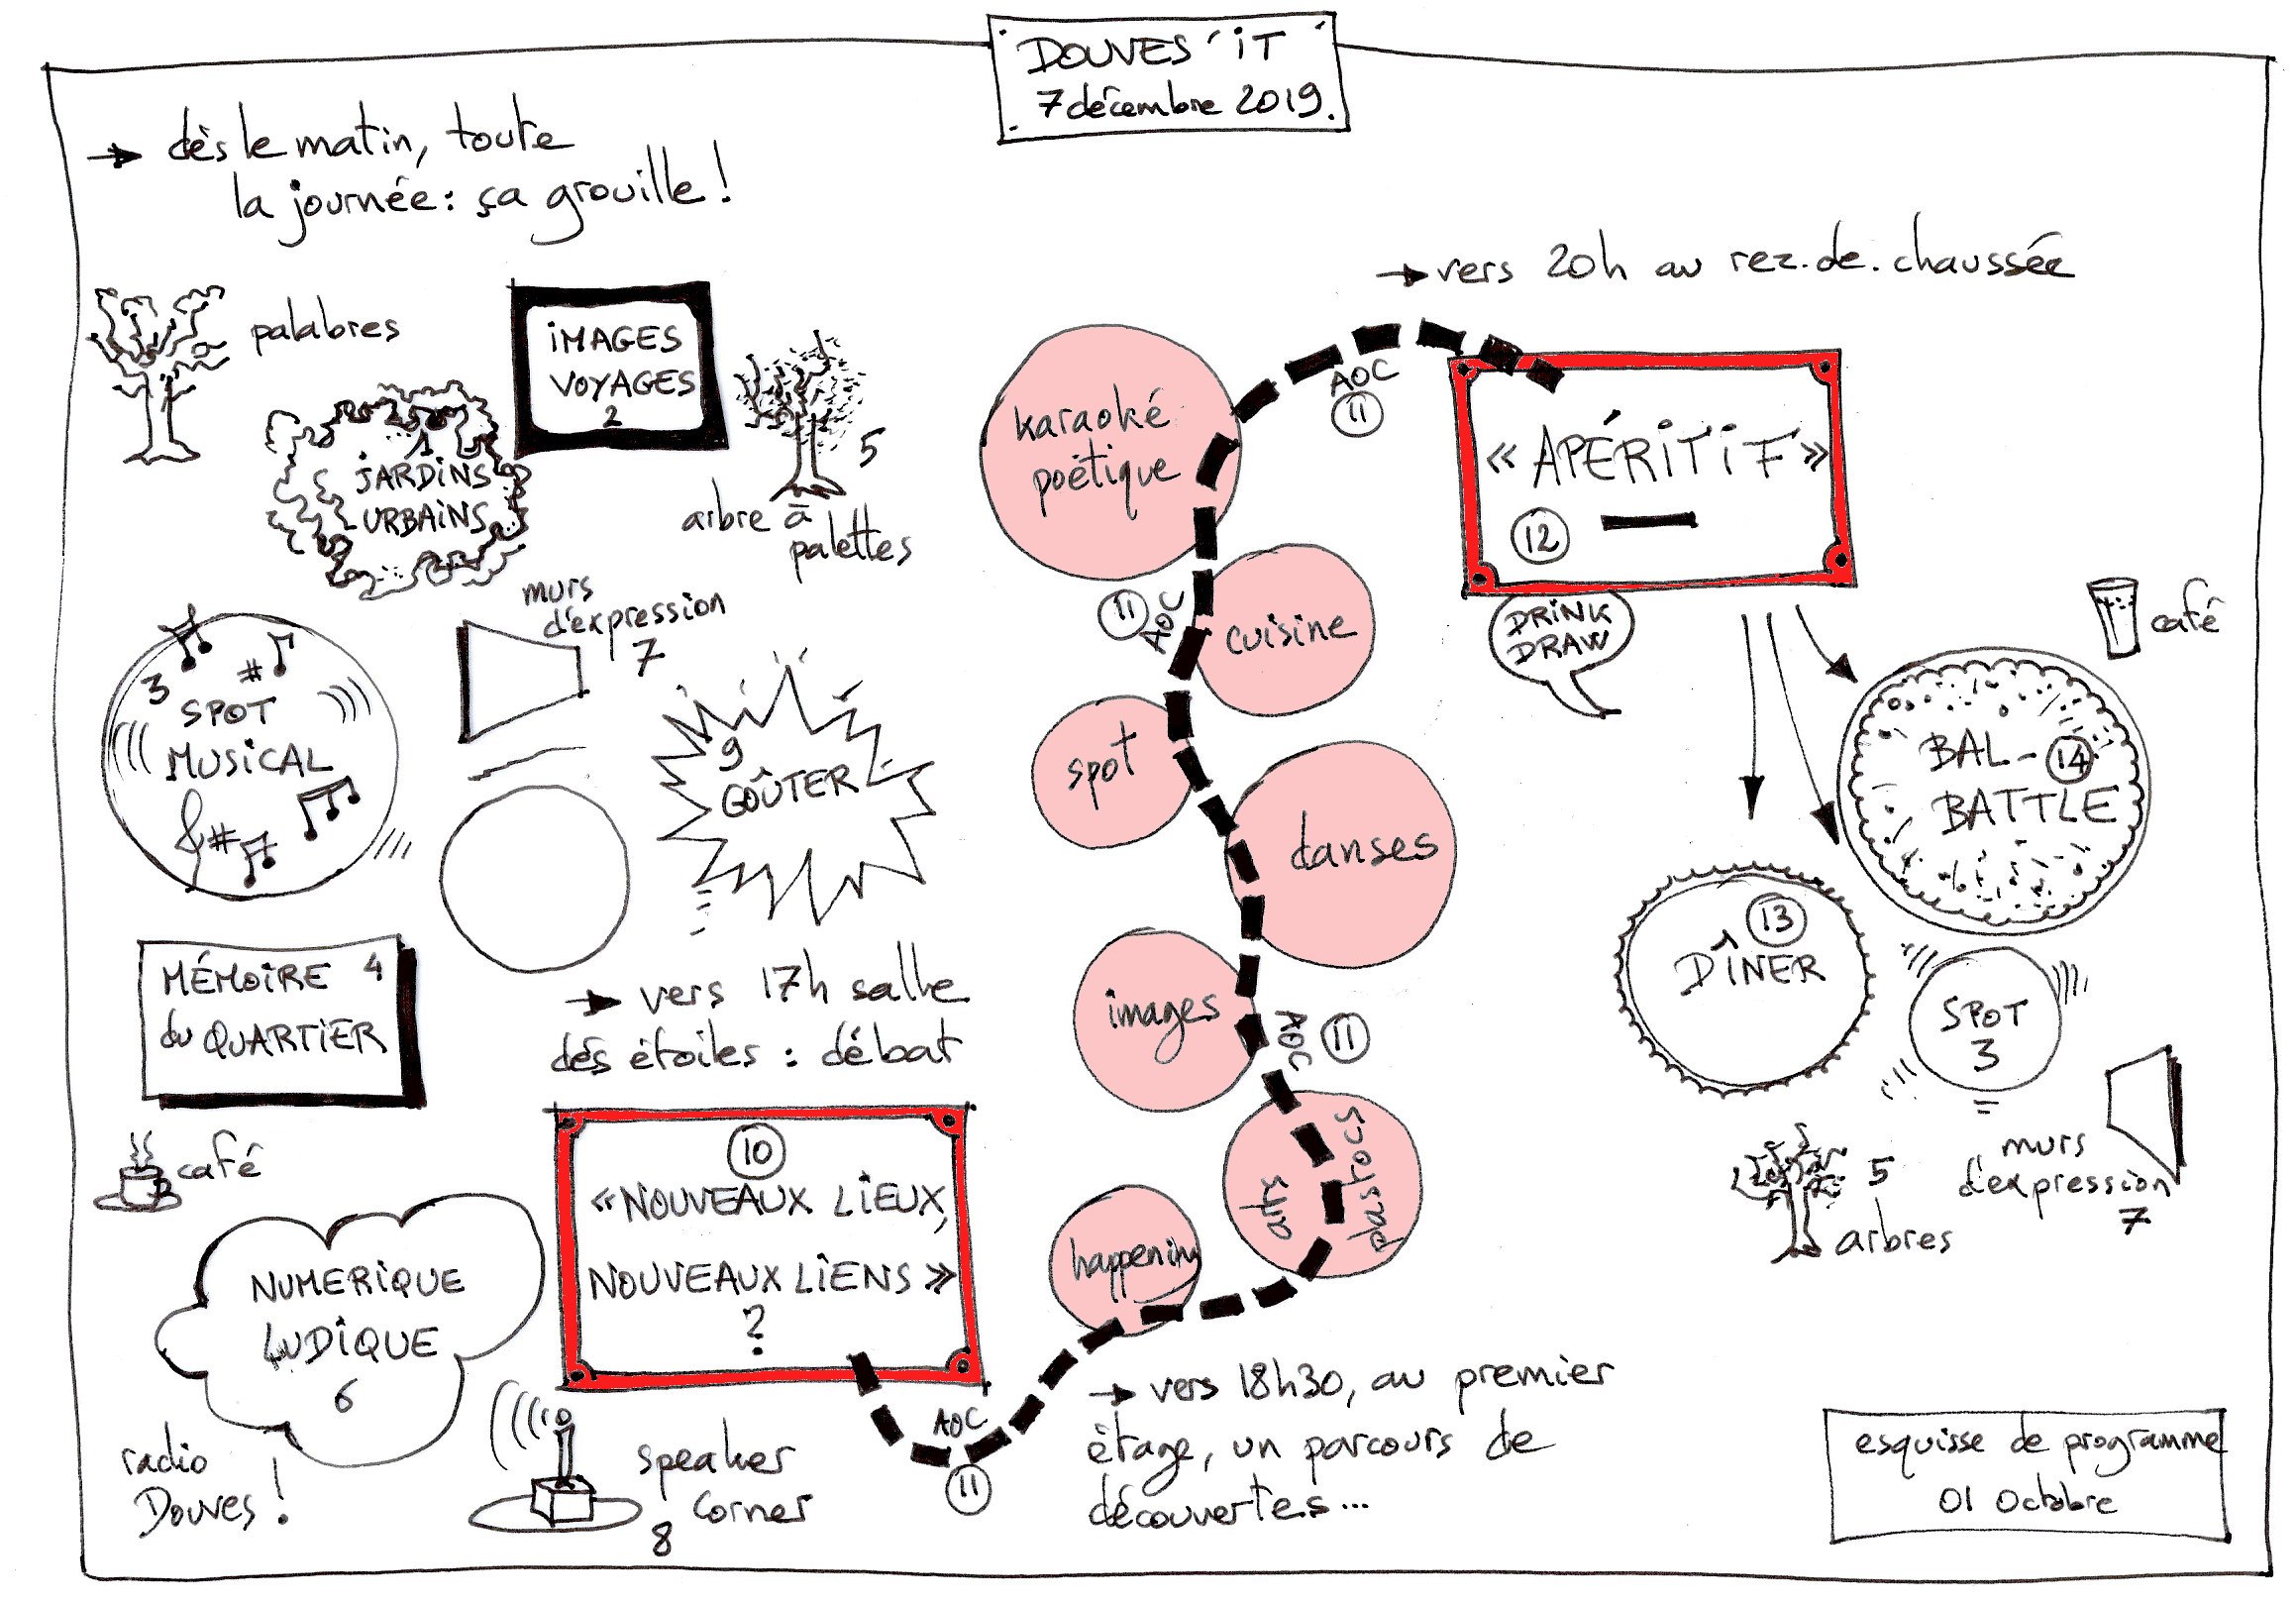 DOUVES'iT
7 décembre 2019.
→ dès le matin, toute
la journée: ça grouille!
palabres
iMAGES
VOYAGES
2
1
JARDiNS
URBAiNS
5
arbre à
palettes
murs
d'expression
7
3
SPOT
MUSiCAL
9
GOÛTER
MÉMOiRE 4
du QUARTiER
café
→ vers 17h salle
des étoiles : débat
10
«NOUVEAUX LiEUX,
NOUVEAUX LiENS»
?
NUMERiQUE
LUDiQUE
6
radio
Douves!
speaker
corner
8
AOC
11
→ vers 18h30, au premier
étage, un parcours de
découvertes...
happening
arts
pas stocs
AOC 11
images
danses
spot
cuisine
11 AOC
karaoké
poëtique
AOC
11
→ vers 20h au rez.de.chaussée
«APÉRiTiF»
12
DRiNK
DRAW
café
BAL-14
BATTLE
13
DÎNER
SPOT
3
murs
d'expression
7
5
arbres
esquisse de programme
01 Octobre